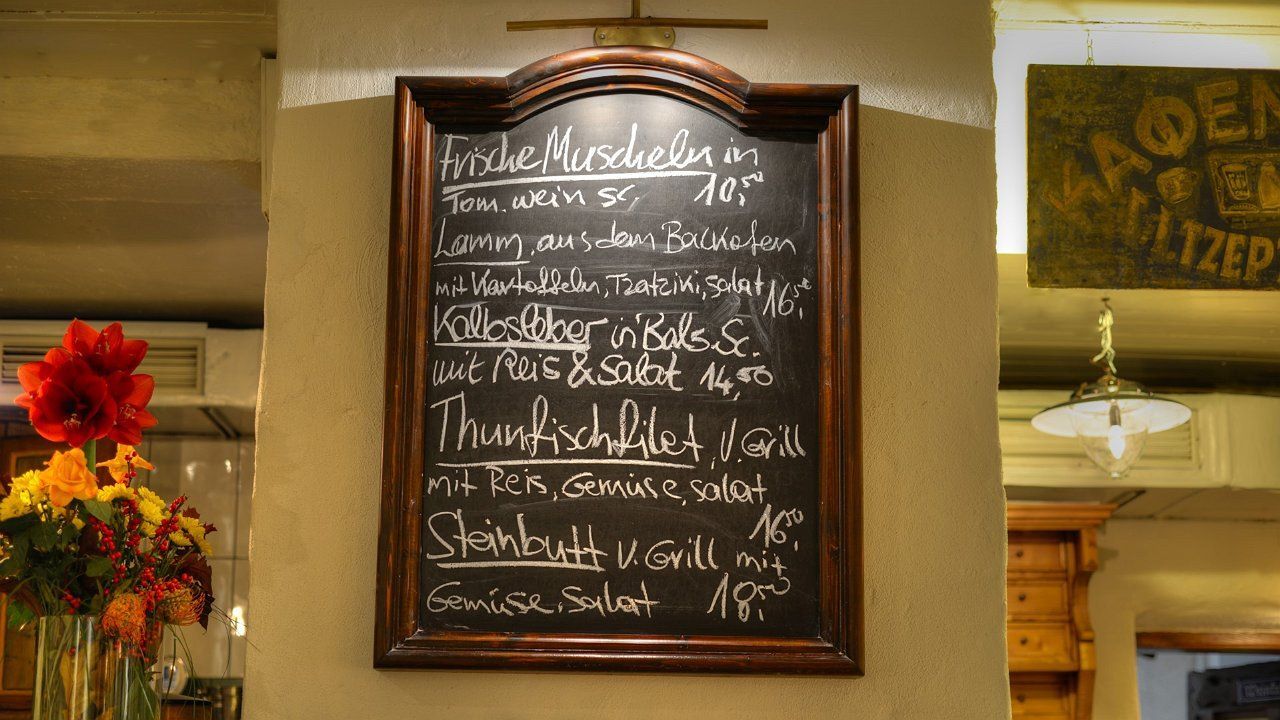 Frische Muscheln in
Tom. wein sc. 10,50
Lamm, aus dem Backofen
mit Kartoffeln, Tzatziki, salat 16,50
Kalbsleber in Bals. Sc.
mit Reis & Salat 14,50
Thunfischfilet, V. Grill
mit Reis, Gemüse, salat
16,50
Steinbutt V. Grill mit
Gemüse, Salat 18,50
ΚΑΦΕΝ
ΤΖΕΡ